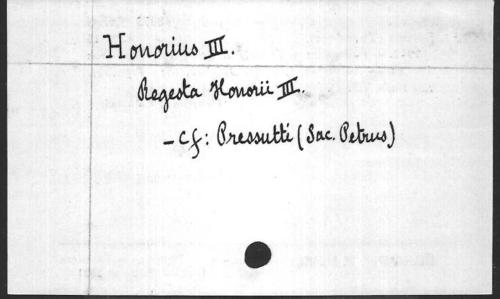 Honorius III.
Regesta Honorii III.
- Cf: Pressutti (Sac. Petrus)